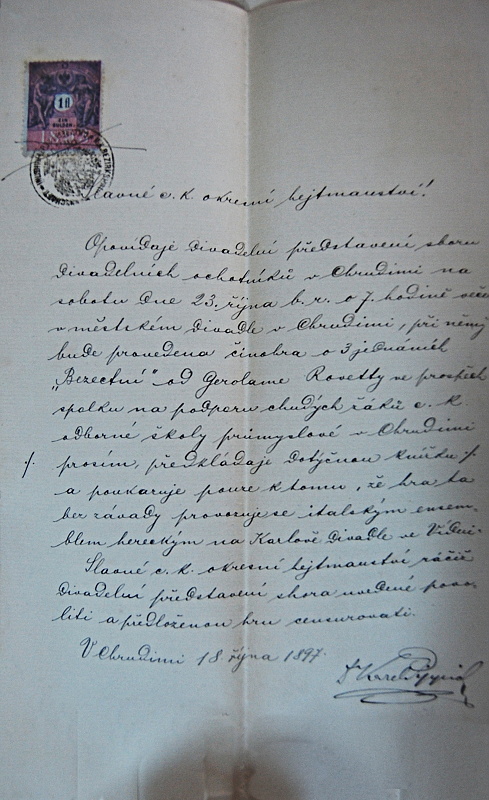 1 fl
EIN
GULDEN
Slavné c. k. okresní hejtmanství!
Opovídaje divadelní představení sboru
divadelních ochotníků v Chrudimi na
sobotu dne 23. října b. r. o 7. hodině večer
v městském divadle v Chrudimi, při němž
bude provedena činohra o 3 jednáních
„Bezectní" od Gerolame Rovetty ve prospěch
spolku na podporu chudých žáků c. k.
odborné školy průmyslové v Chrudimi
./. prosím, předkládaje dotyčnou knížku ./.
a poukazuje pouze k tomu, že hra ta
bez závady provozuje se italským ensem-
blem hereckým na Karlově divadle ve Vídni.
Slavné c. k. okresní hejtmanství račiž
divadelní představení shora uvedené povo-
liti a předloženou hru censurovati.
V Chrudimi 18 října 1897.
Karel